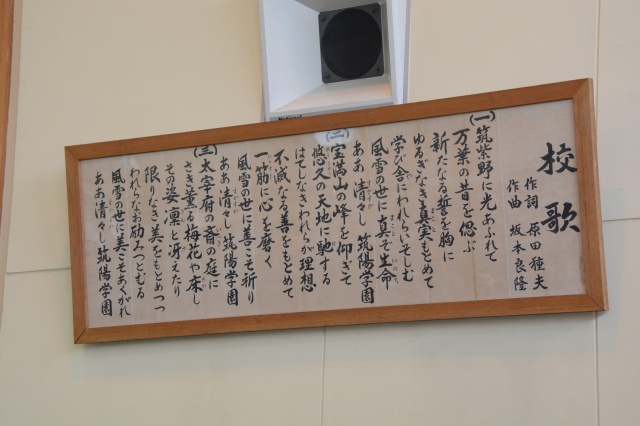 校歌
作詞 原田種夫
作曲 坂本良隆
(一)筑紫野に光あふれて
万葉の昔を偲ぶ
新たなる誓を胸に
ゆるぎなき真実もとめて
学び舎にわれらいそしむ
風雪の世に真ぞ生命
ああ 清々し 筑陽学園
(二)宝満山の峰を仰ぎて
悠久の天地に馳する
はてしなきわれらが理想
不滅なる善をもとめて
一筋に心を磨く
風雪の世に善こそ祈り
ああ清々し 筑陽学園
(三)太宰府の斎の庭に
さき薫る梅花や床し
その姿 凛と冴えたり
限りなき美をもとめつつ
われらなお励みつとむる
風雪の世に美こそあくがれ
ああ清々し 筑陽学園
National